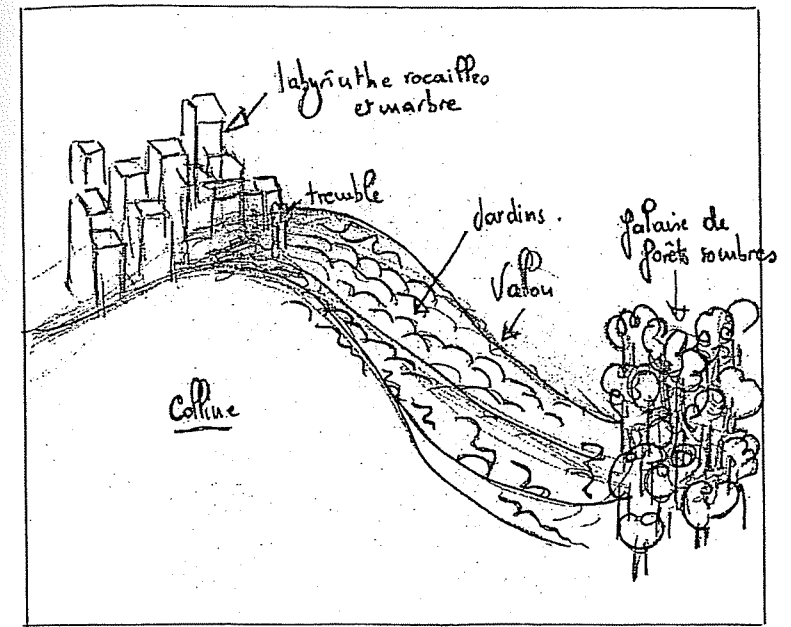 labyrinthe rocailles
et marbre
tremble
Jardins.
Vallon
falaise de
forêts sombres
Colline